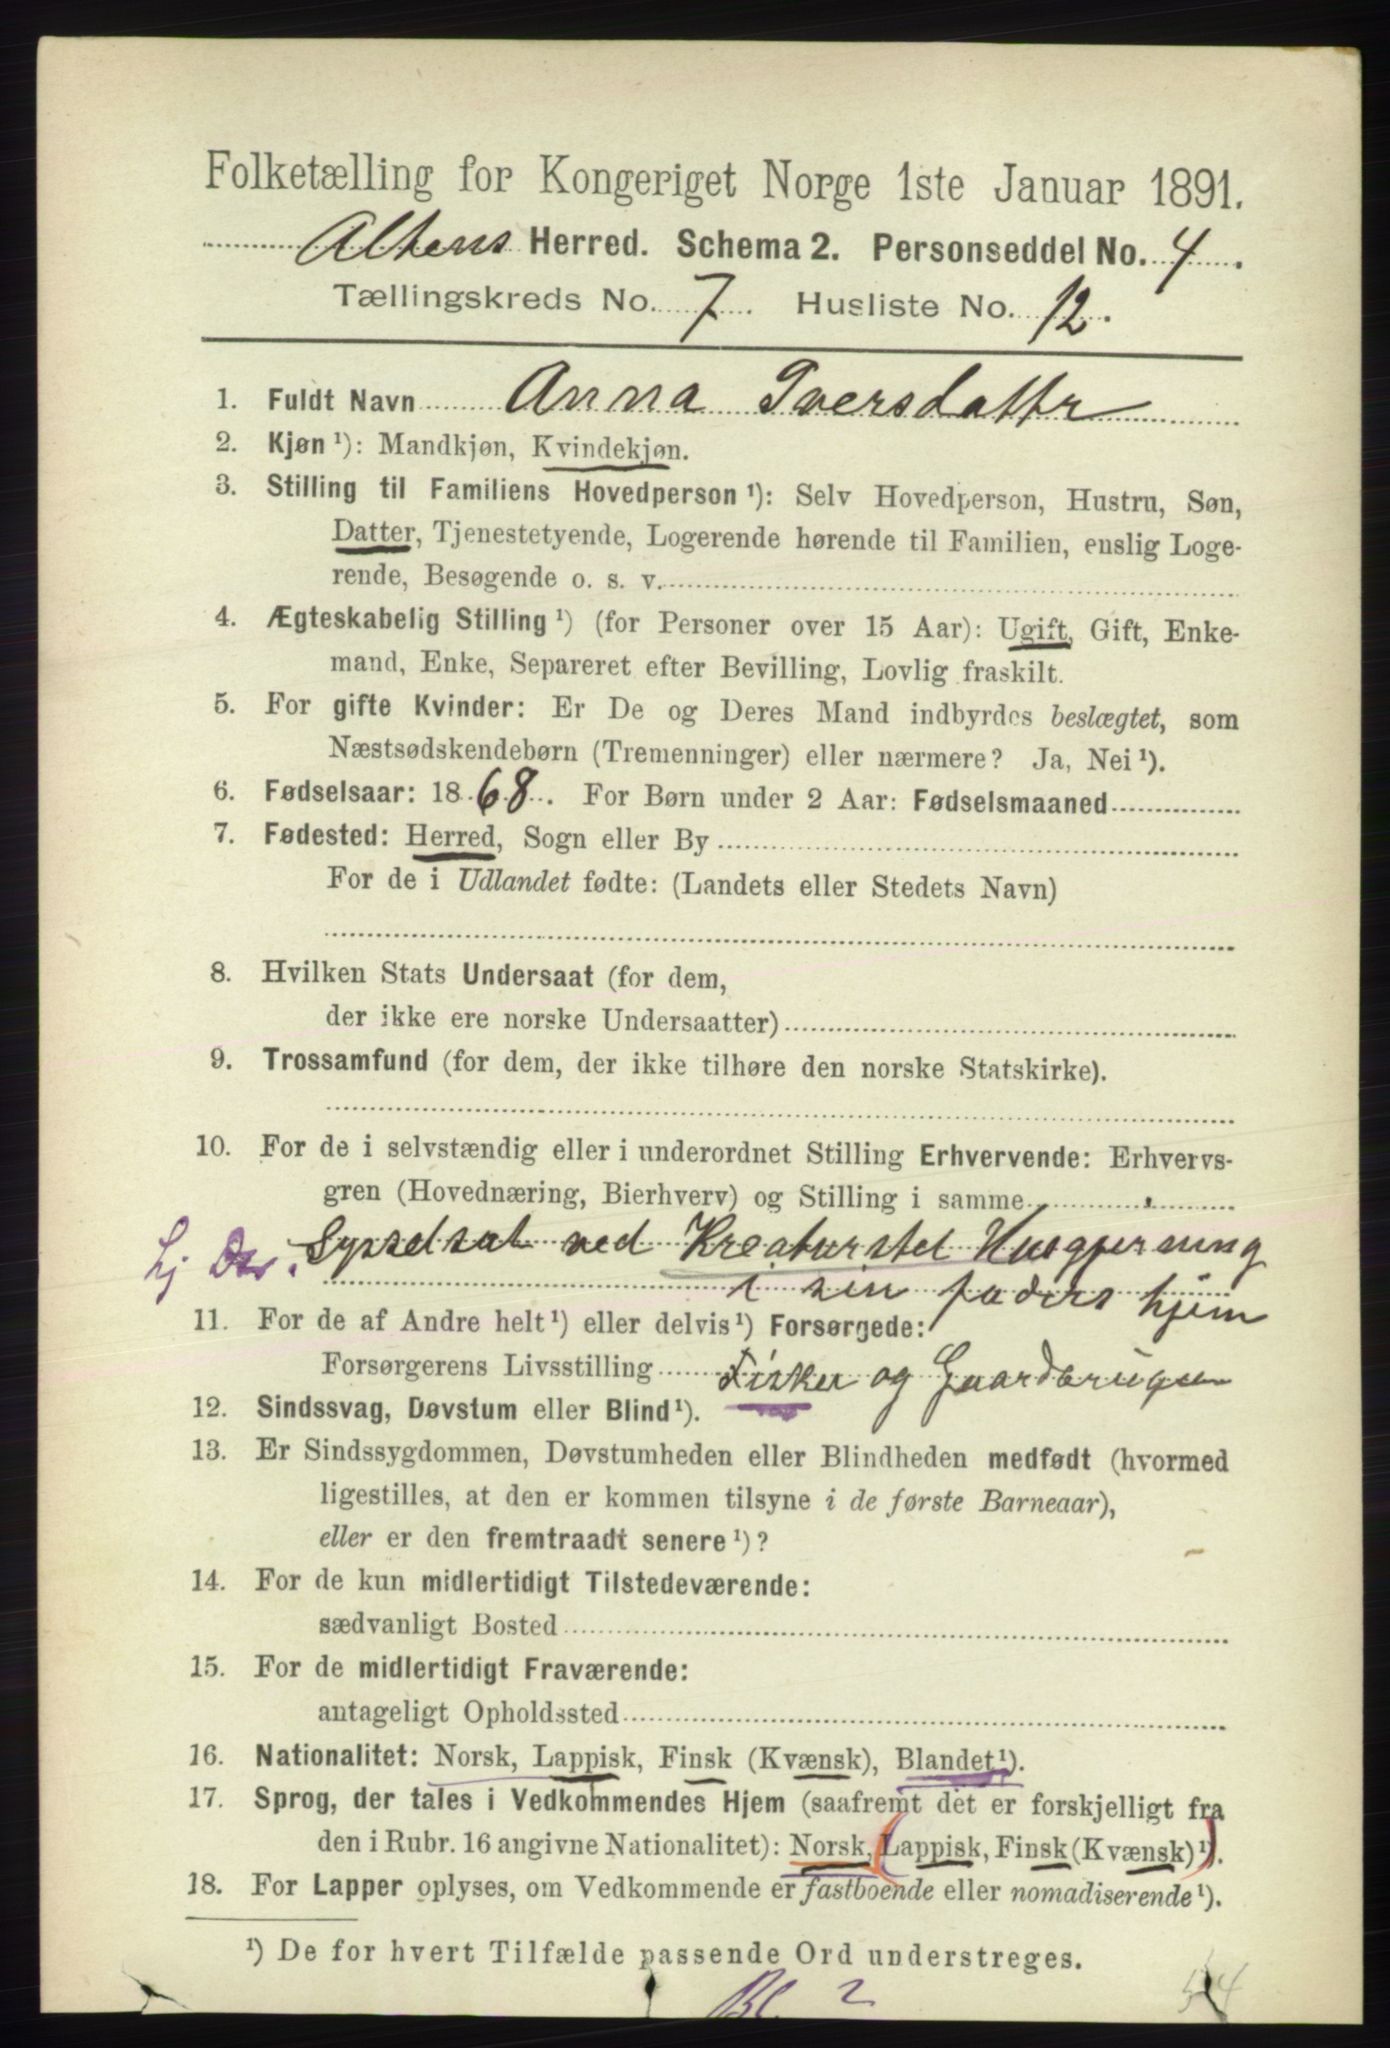 Folketælling for Kongeriget Norge 1ste Januar 1891.
Altens Herred. Schema 2. Personseddel No. 4.
Tællingskreds No. 7. Husliste No. 12.
1. Fuldt Navn Anna Iversdattr
2. Kjøn ¹): Mandkjøn, Kvindekjøn.
3. Stilling til Familiens Hovedperson ¹): Selv Hovedperson, Hustru, Søn,
Datter, Tjenestetyende, Logerende hørende til Familien, enslig Loge-
rende, Besøgende o. s. v.
4. Ægteskabelig Stilling ¹) (for Personer over 15 Aar): Ugift, Gift, Enke-
mand, Enke, Separeret efter Bevilling, Lovlig fraskilt.
5. For gifte Kvinder: Er De og Deres Mand indbyrdes beslægtet, som
Næstsødskendebørn (Tremenninger) eller nærmere? Ja, Nei ¹).
6. Fødselsaar: 1868. For Børn under 2 Aar: Fødselsmaaned
7. Fødested: Herred, Sogn eller By
For de i Udlandet fødte: (Landets eller Stedets Navn)
8. Hvilken Stats Undersaat (for dem,
der ikke ere norske Undersaatter)
9. Trossamfund (for dem, der ikke tilhøre den norske Statskirke).
10. For de i selvstændig eller i underordnet Stilling Erhvervende: Erhvervs-
gren (Hovednæring, Bierhverv) og Stilling i samme
Sysselsat ved Kreaturstel Husgjerning
i sin faders hjem
11. For de af Andre helt ¹) eller delvis ¹) Forsørgede:
Forsørgerens Livsstilling Fisker og Gaardbruger
12. Sindssvag, Døvstum eller Blind ¹).
13. Er Sindssygdommen, Døvstumheden eller Blindheden medfødt (hvormed
ligestilles, at den er kommen tilsyne i de første Barneaar),
eller er den fremtraadt senere ¹)?
14. For de kun midlertidigt Tilstedeværende:
sædvanligt Bosted
15. For de midlertidigt Fraværende:
antageligt Opholdssted
16. Nationalitet: Norsk, Lappisk, Finsk (Kvænsk), Blandet ¹).
17. Sprog, der tales i Vedkommendes Hjem (saafremt det er forskjelligt fra
den i Rubr. 16 angivne Nationalitet): Norsk, (Lappisk, Finsk (Kvænsk) ¹)).
18. For Lapper oplyses, om Vedkommende er fastboende eller nomadiserende ¹).
¹) De for hvert Tilfælde passende Ord understreges.
Bl. 2
54